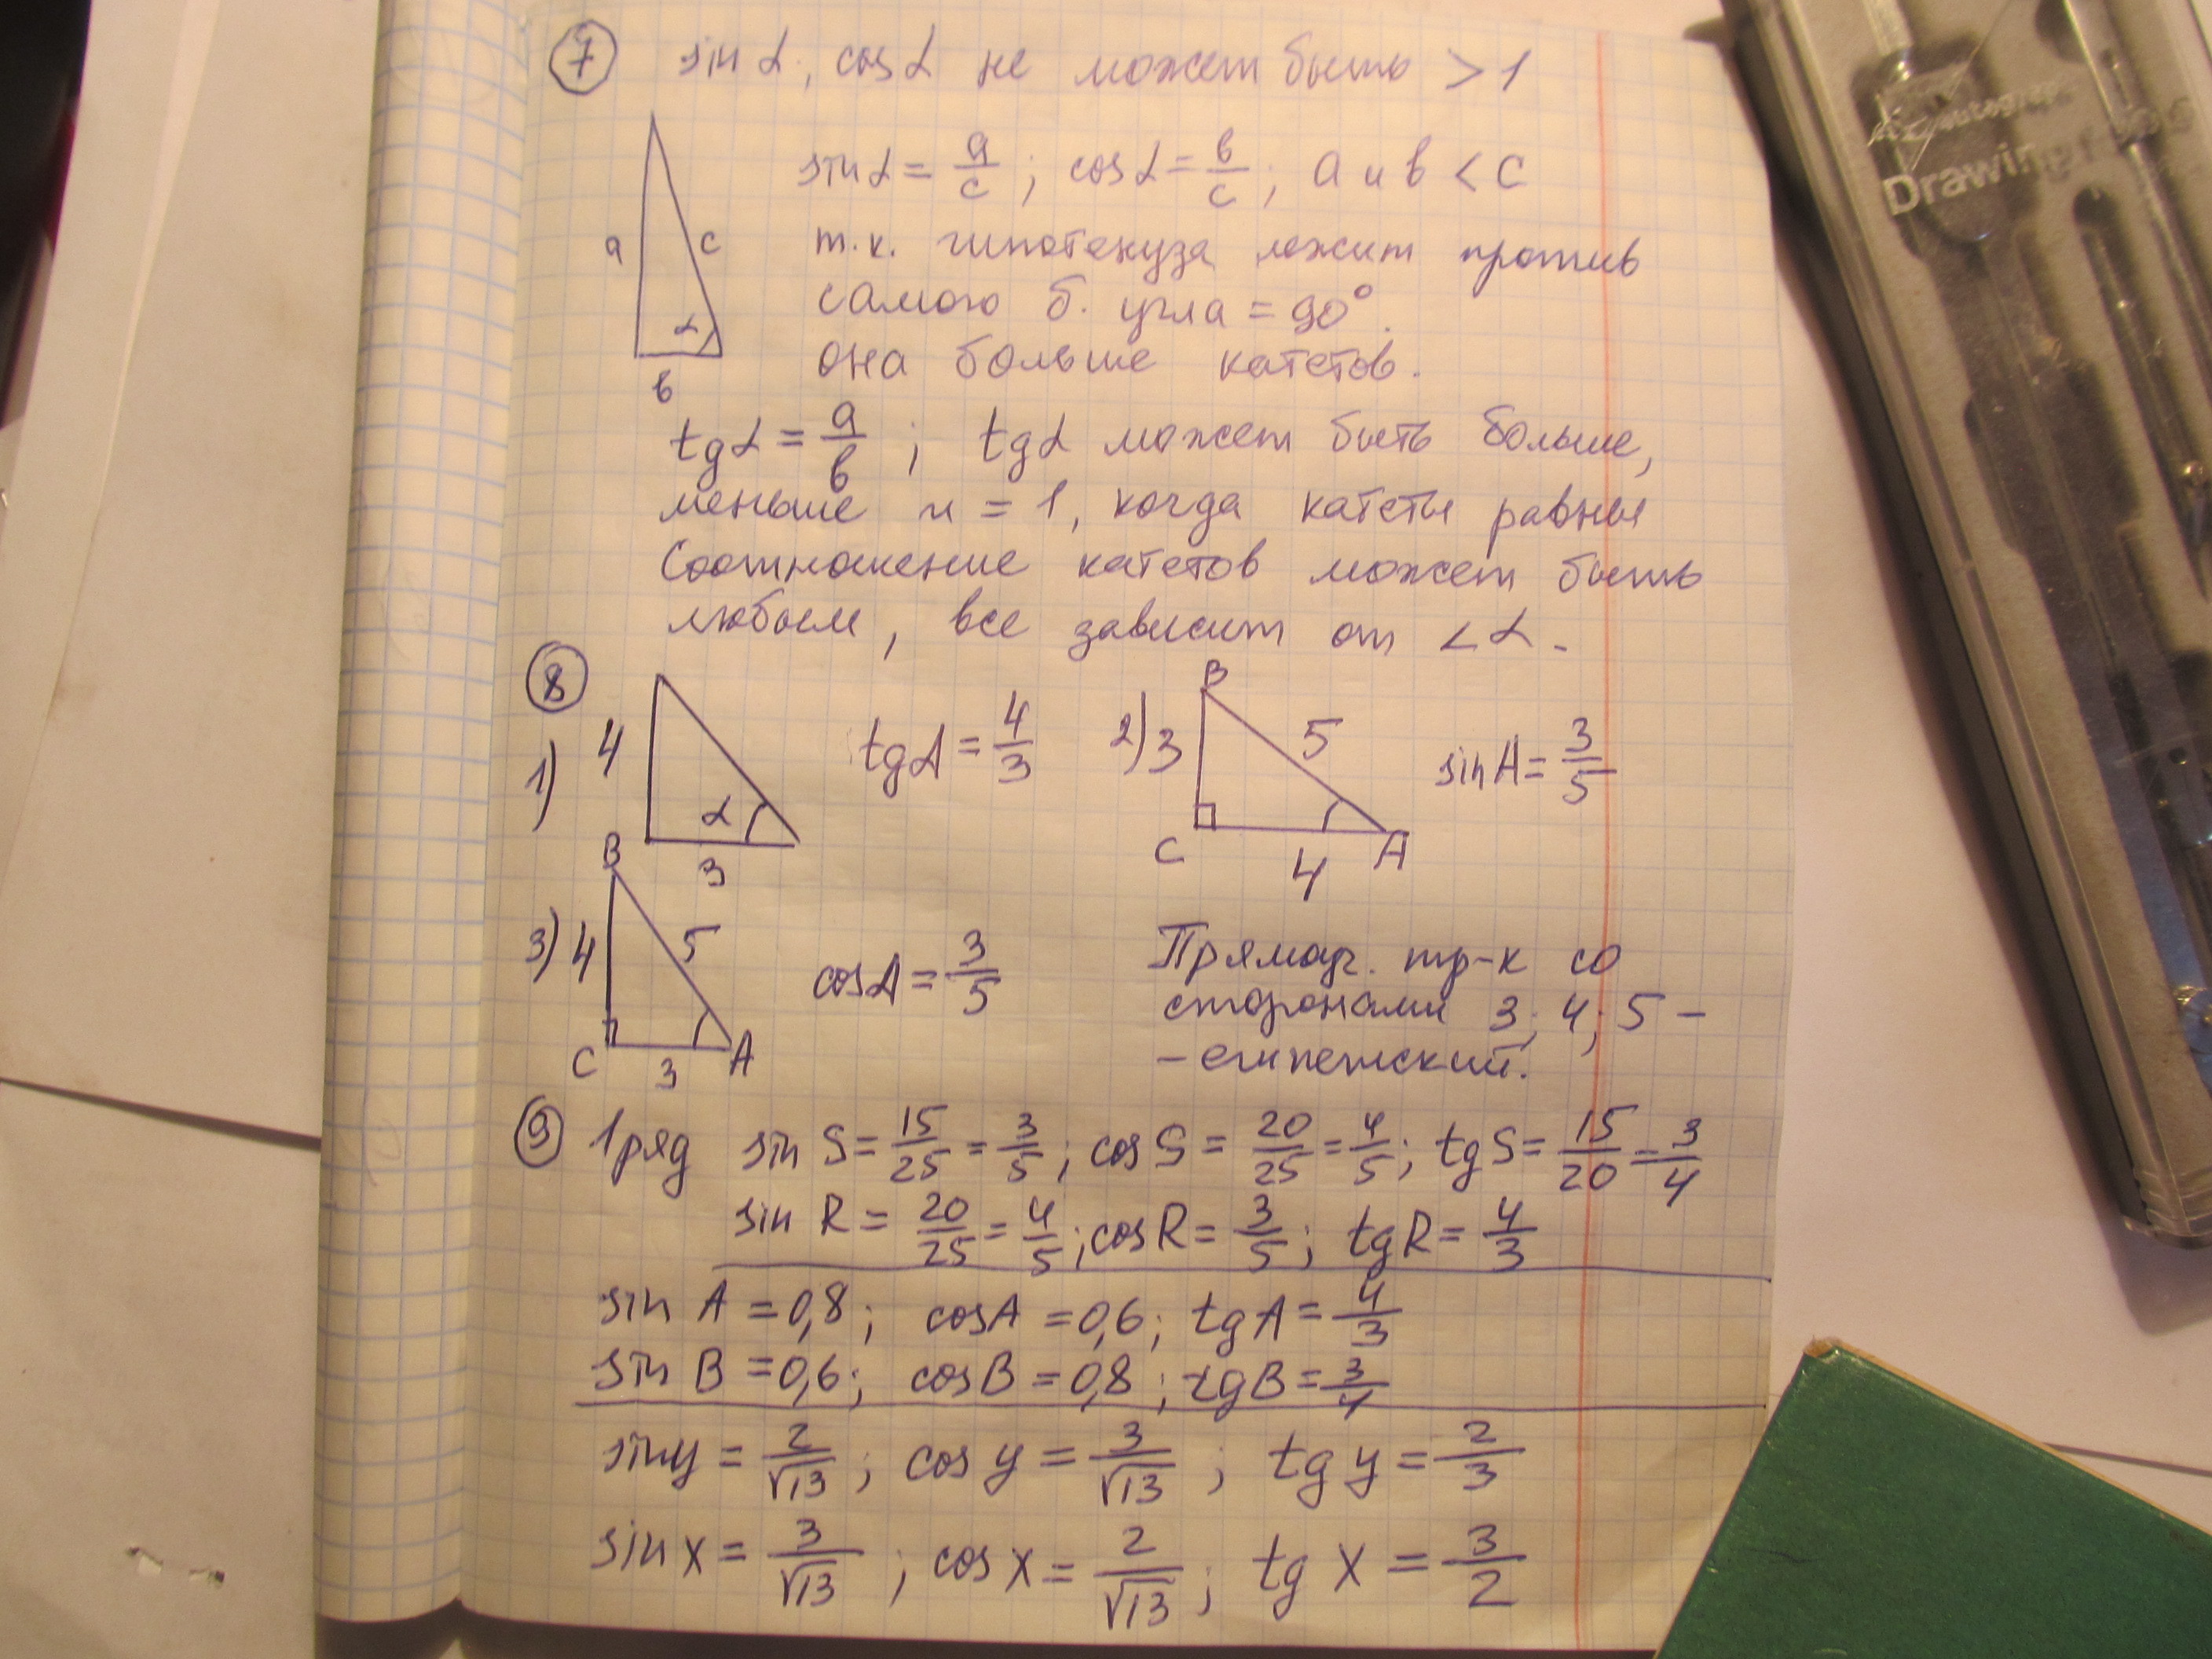 ⑦ sin α, cos α не может быть > 1
sin α = a/c ; cos α = b/c ; a и b < c
a
c
т.к. гипотенуза лежит против
самого б. угла = 90°.
α
она больше катетов.
b
tg α = a/b ; tg α может быть больше,
меньше и = 1, когда катеты равны
Соотношение катетов может быть
любым, все зависит от <α.
⑧
1) 4
α
3
tg α = 4/3
2) 3
B
5
C
4
A
sin A = 3/5
3) 4
B
5
C
3
A
cos A = 3/5
Прямоуг. тр-к со
сторонами 3; 4; 5 –
– египетский.
⑨ 1 ряд sin S = 15/25 = 3/5 ; cos S = 20/25 = 4/5 ; tg S = 15/20 = 3/4
sin R = 20/25 = 4/5 ; cos R = 3/5 ; tg R = 4/3
sin A = 0,8 ; cos A = 0,6 ; tg A = 4/3
sin B = 0,6 ; cos B = 0,8 ; tg B = 3/4
sin y = 2/√13 ; cos y = 3/√13 ; tg y = 2/3
sin x = 3/√13 ; cos x = 2/√13 ; tg x = 3/2
Drawing